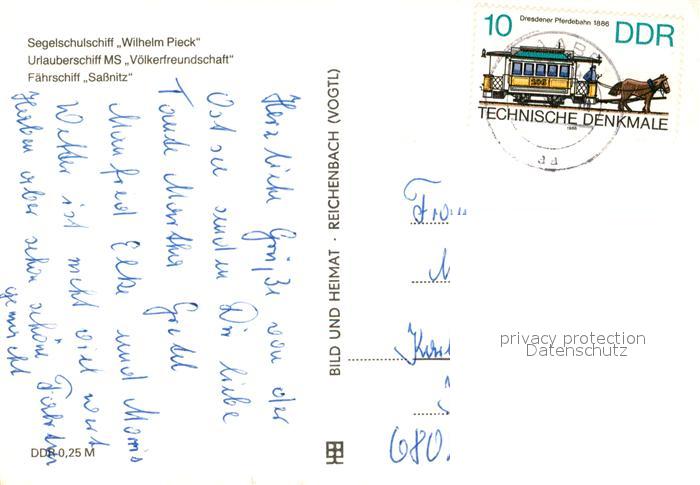 Segelschulschiff „Wilhelm Pieck“
Urlauberschiff MS „Völkerfreundschaft“
Fährschiff „Saßnitz“
Herzliche Grüße von der
Ostsee senden Dir liebe
Tante Martha Gretel
Manfred Elke und Mario
Wetter ist nicht viel wert
Haben aber schon schöne Fahrten
gemacht
DDR 0,25 M
BILD UND HEIMAT · REICHENBACH (VOGTL)
10 Dresdener Pferdebahn 1886 DDR
TECHNISCHE DENKMALE
1986
680.
privacy protection
Datenschutz